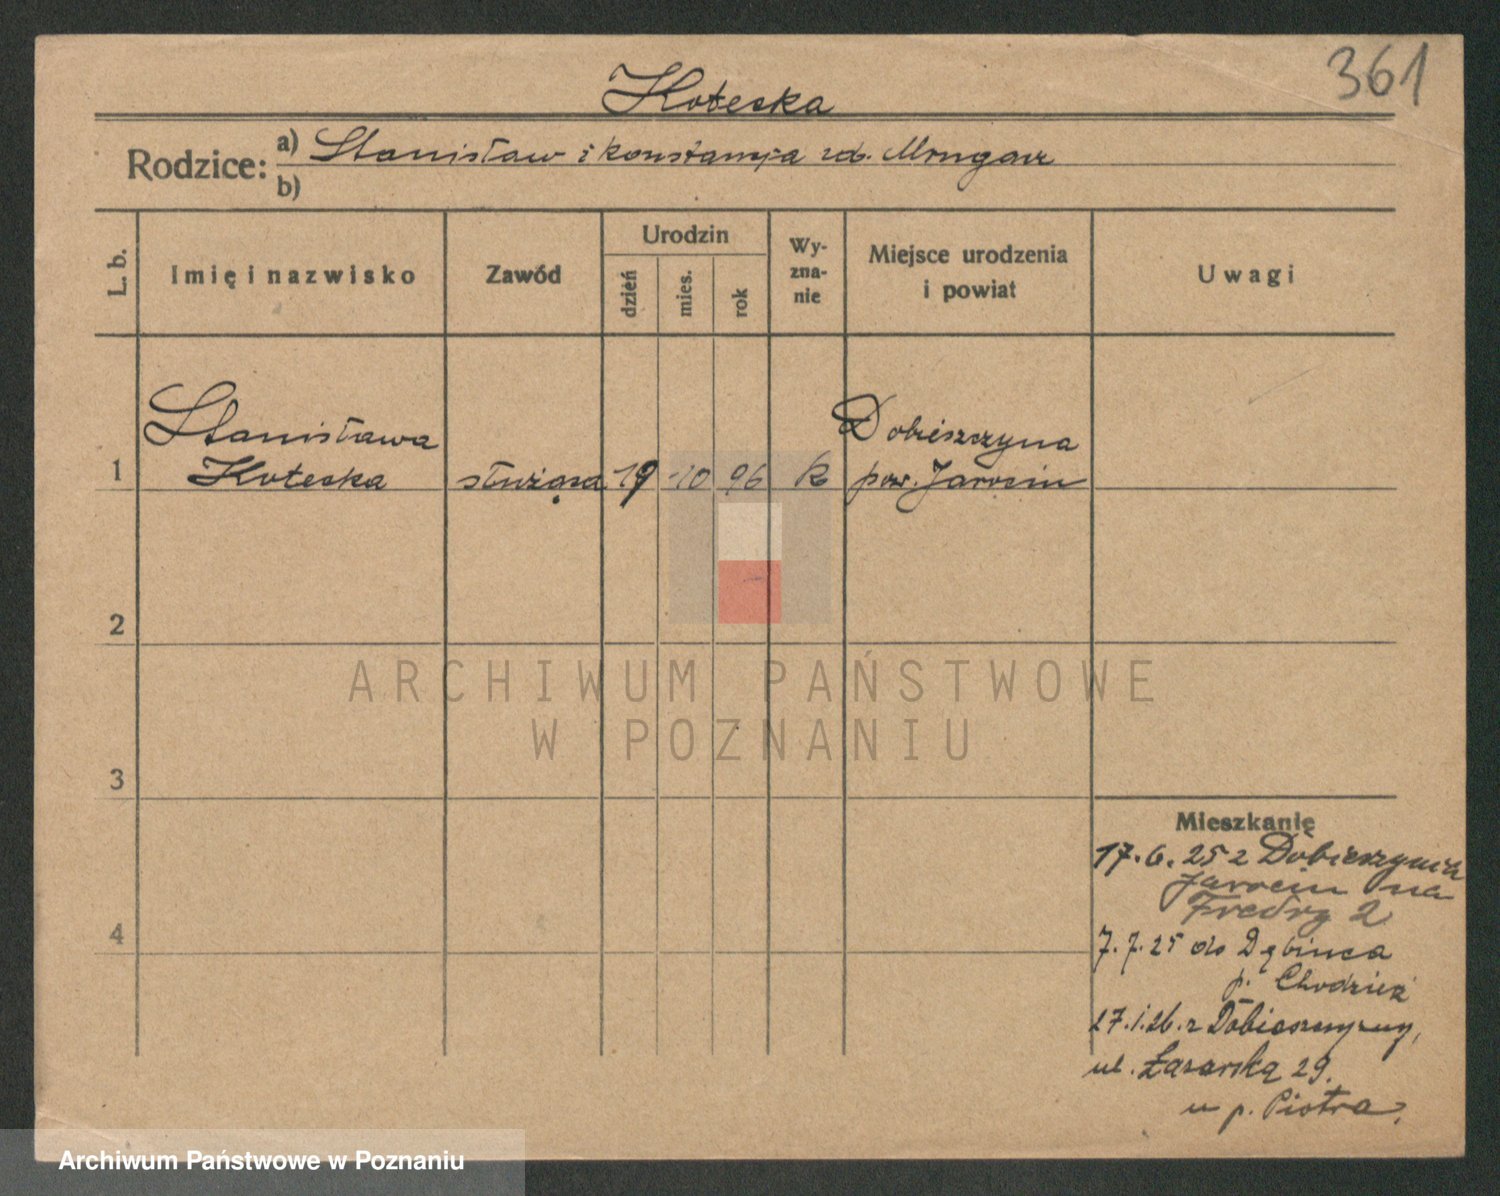 361
Koteska
Rodzice: a) Stanisław i Konstancja zd. Mrugas
b)
L. b.
Imię i nazwisko
Zawód
Urodzin
dzień
mies.
rok
Wy-
zna-
nie
Miejsce urodzenia
i powiat
Uwagi
1
Stanisława
Koteska
służąca
19
10
96
k
Dobieszczyna
pow. Jarocin
2
3
4
Mieszkanie
17. 6. 25 z
Jarocin na
Fredry 2
7. 7. 25 do Dębinca
p. Chodzież
27. 1. 26. z Dobieszczyzny,
ul. Łazarska 29.
u p. Piotra
ARCHIWUM PAŃSTWOWE
W POZNANIU
Archiwum Państwowe w Poznaniu